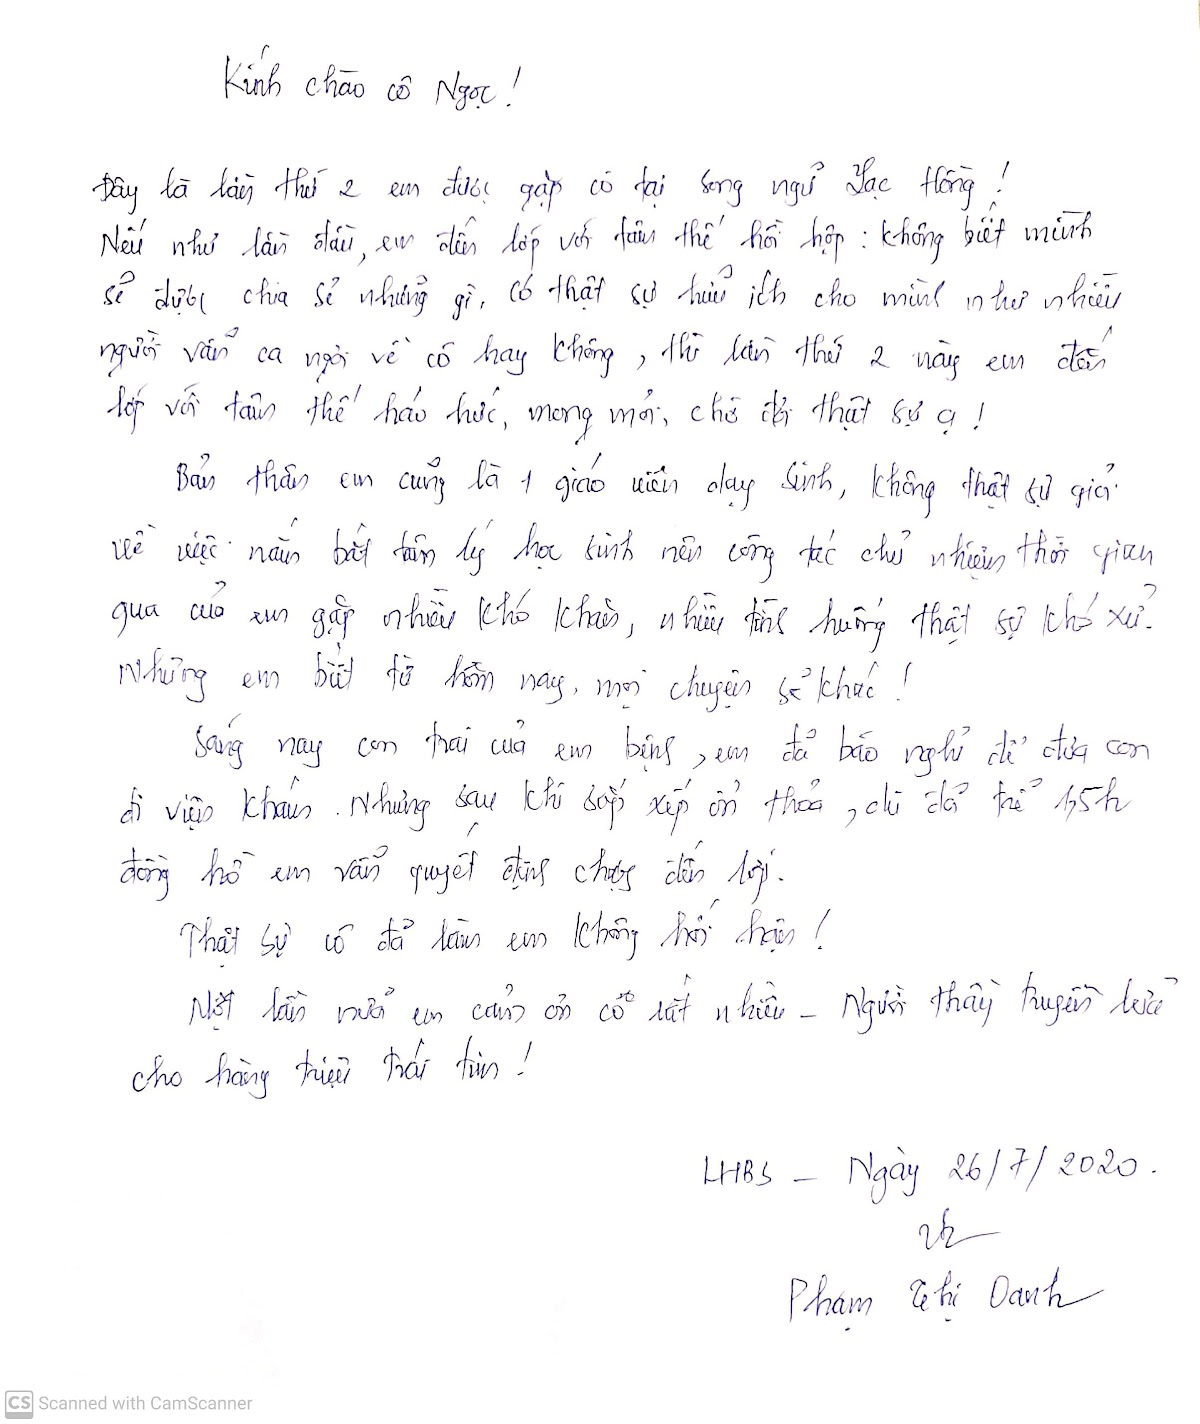 Kính chào cô Ngọc!
Đây là lần thứ 2 em được gặp cô tại song ngữ Lạc Hồng!
Nếu như lần đầu, em đến lớp với tâm thế hồi hộp: không biết mình
sẽ được chia sẻ những gì, có thật sự hữu ích cho mình như nhiều
người vẫn ca ngợi về cô hay không, thì lần thứ 2 này em đến
lớp với tâm thế háo hức, mong mỏi, chờ đợi thật sự ạ!
Bản thân em cũng là 1 giáo viên dạy Sinh, không thật sự giỏi
về việc nắm bắt tâm lý học sinh nên công tác chủ nhiệm thời gian
qua của em gặp nhiều khó khăn, nhiều tình huống thật sự khó xử.
Nhưng em biết từ hôm nay, mọi chuyện sẽ khác!
Sáng nay con trai của em bệnh, em đã báo nghỉ để đưa con
đi viện khám. Nhưng sau khi sắp xếp ổn thỏa, dù đã trễ 1,5h
đồng hồ em vẫn quyết định chạy đến lớp.
Thật sự cô đã làm em không hối hận!
Một lần nữa em cảm ơn cô rất nhiều - Người thầy truyền lửa
cho hàng triệu trái tim!
LHBS - Ngày 26/7/2020.
Phạm Thị Oanh
CS Scanned with CamScanner